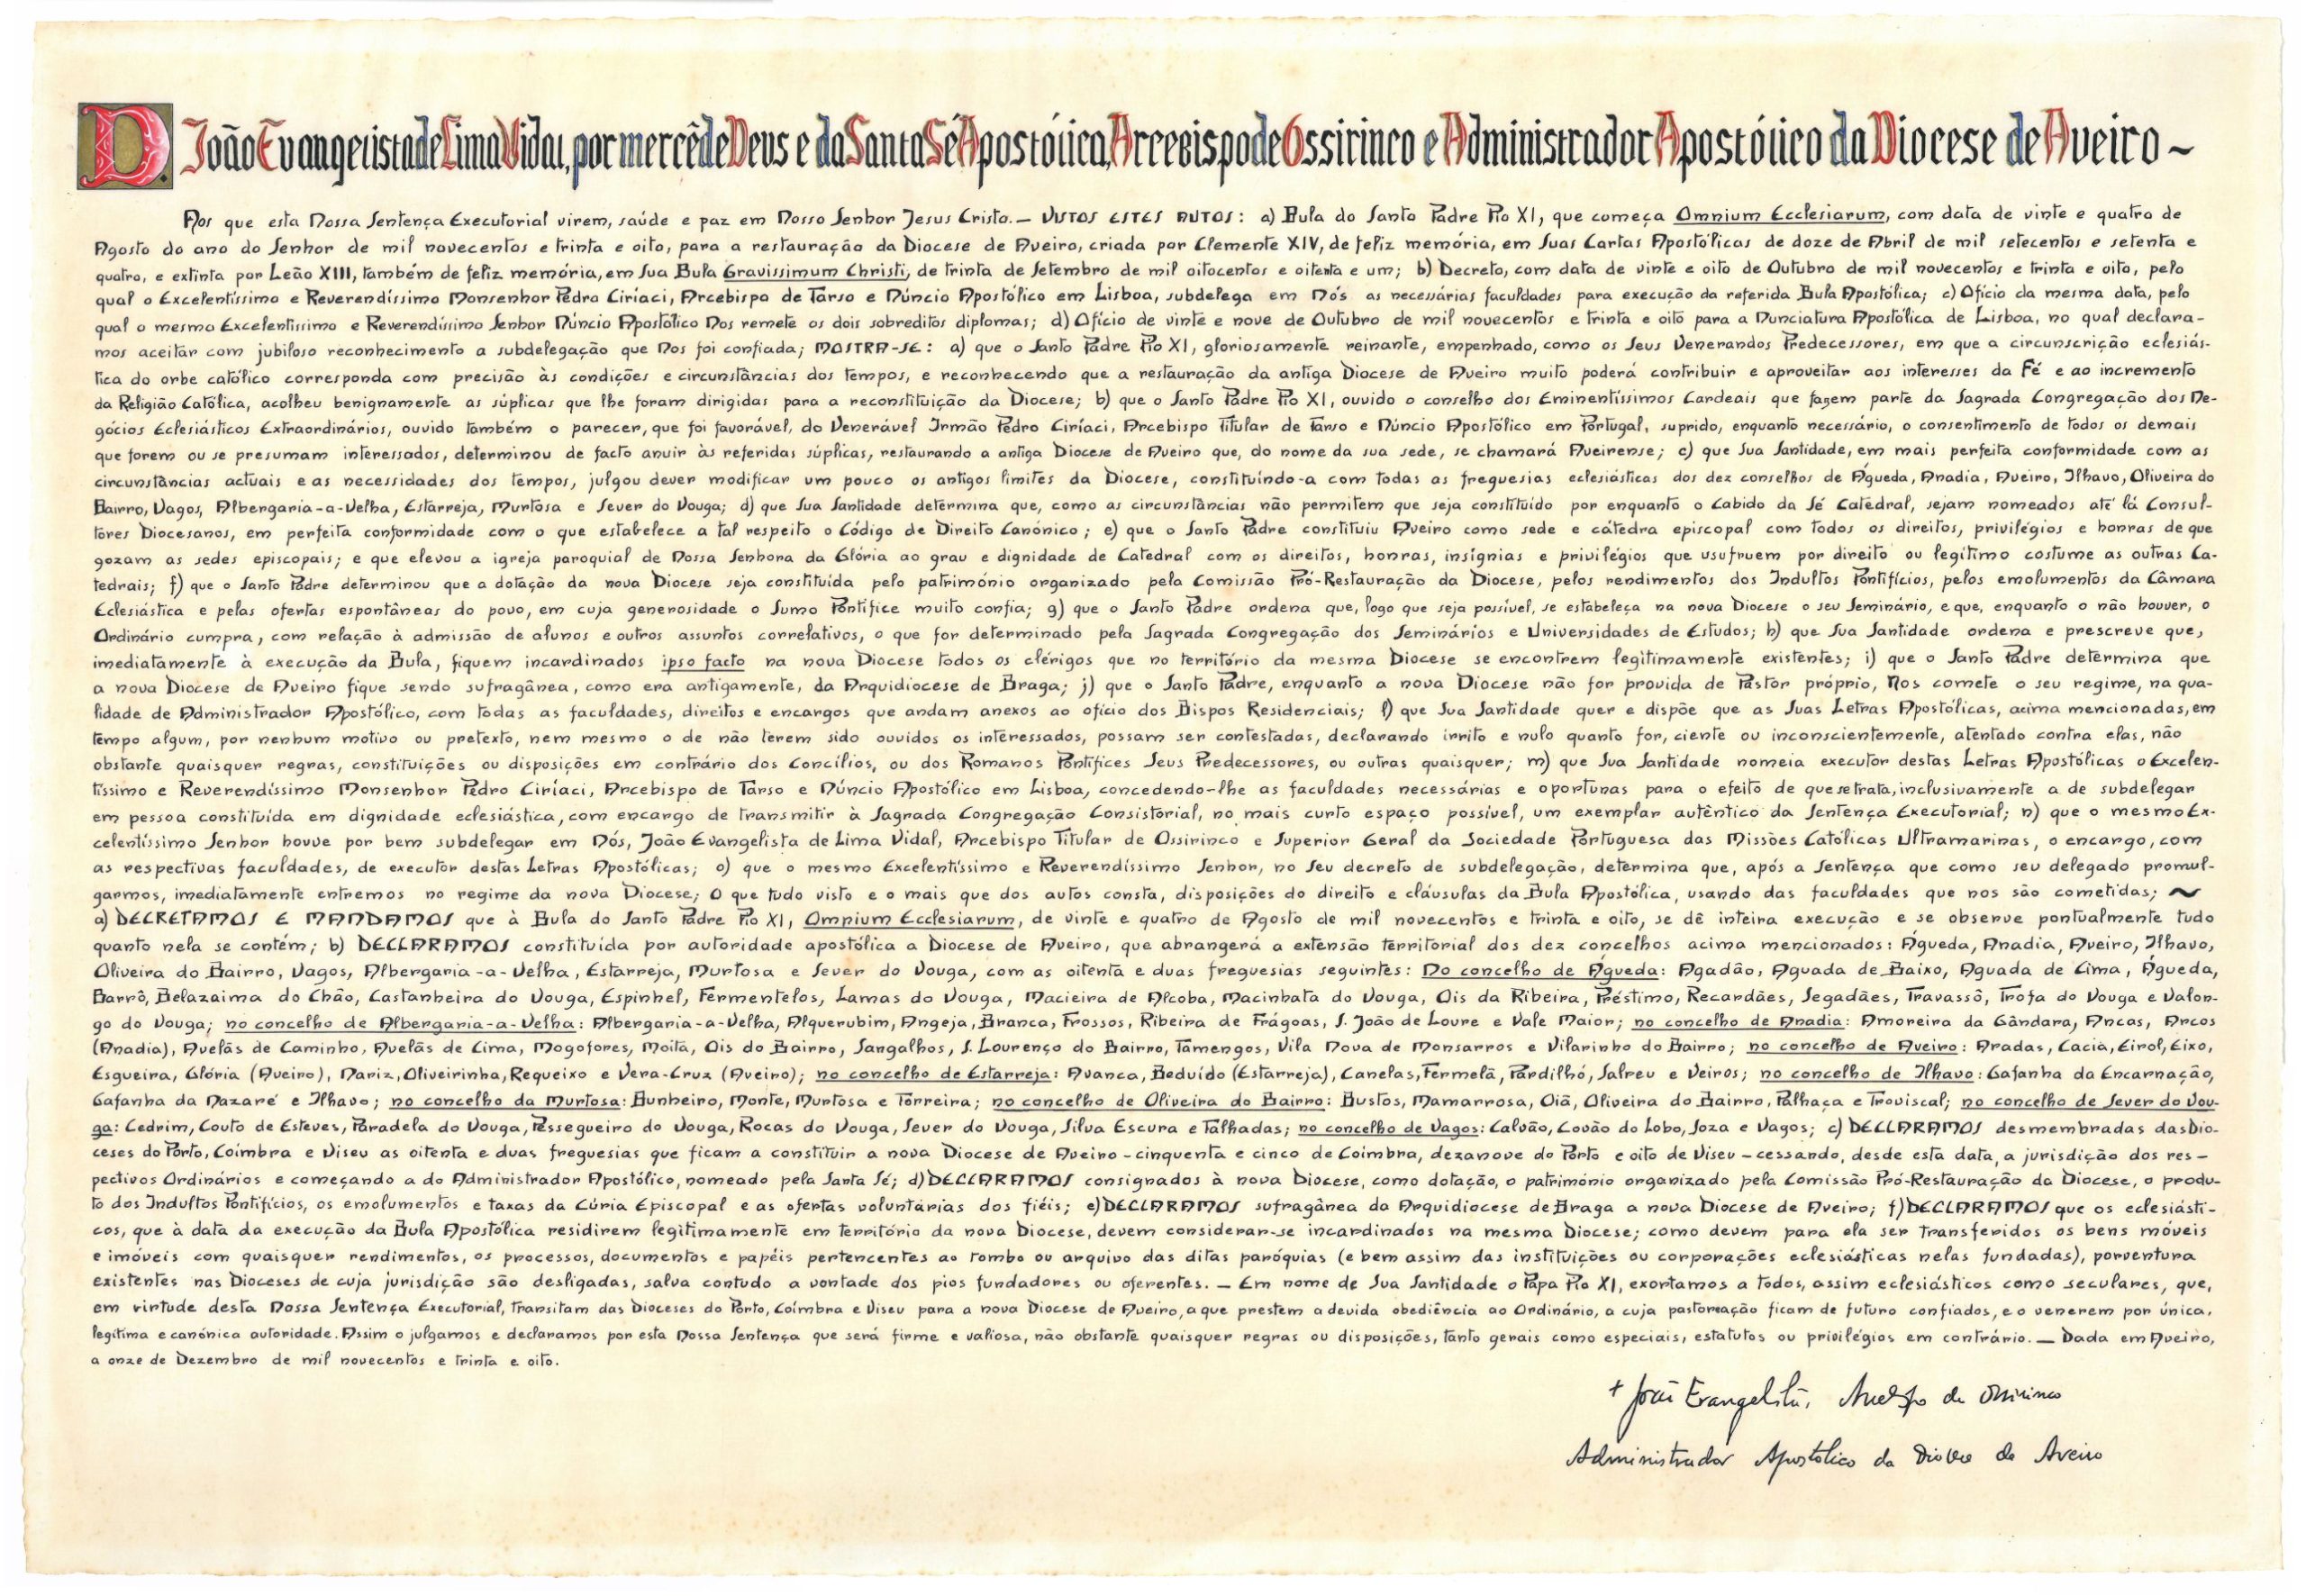 D. João Evangelista de Lima Vidal, por mercê de Deus e da Santa Sé Apostólica, Arcebispo de Ossirinco e Administrador Apostólico da Diocese de Aveiro ~
Aos que esta Nossa Sentença Executorial virem, saúde e paz em Nosso Senhor Jesus Cristo. — VISTOS ESTES AUTOS: a) Bula do Santo Padre Pio XI, que começa Omnium Ecclesiarum, com data de vinte e quatro de
Agosto do ano do Senhor de mil novecentos e trinta e oito, para a restauração da Diocese de Aveiro, criada por Clemente XIV, de feliz memória, em Suas Cartas Apostólicas de doze de Abril de mil setecentos e setenta e
quatro, e extinta por Leão XIII, também de feliz memória, em Sua Bula Gravissimum Christi, de trinta de Setembro de mil oitocentos e oitenta e um; b) Decreto, com data de vinte e oito de Outubro de mil novecentos e trinta e oito, pelo
qual o Excelentíssimo e Reverendíssimo Monsenhor Pedro Ciríaci, Arcebispo de Tarso e Núncio Apostólico em Lisboa, subdelega em Nós as necessárias faculdades para execução da referida Bula Apostólica; c) Ofício da mesma data, pelo
qual o mesmo Excelentíssimo e Reverendíssimo Senhor Núncio Apostólico Nos remete os dois sobreditos diplomas; d) Ofício de vinte e nove de Outubro de mil novecentos e trinta e oito para a Nunciatura Apostólica de Lisboa, no qual declara-
mos aceitar com jubiloso reconhecimento a subdelegação que Nos foi confiada; MOSTRA-SE: a) que o Santo Padre Pio XI, gloriosamente reinante, empenhado, como os Seus Venerandos Predecessores, em que a circunscrição eclesiás-
tica do orbe católico corresponda com precisão às condições e circunstâncias dos tempos, e reconhecendo que a restauração da antiga Diocese de Aveiro muito poderá contribuir e aproveitar aos interesses da Fé e ao incremento
da Religião Católica, acolheu benignamente as súplicas que lhe foram dirigidas para a reconstituição da Diocese; b) que o Santo Padre Pio XI, ouvido o conselho dos Eminentíssimos Cardeais que fazem parte da Sagrada Congregação dos Ne-
gócios Eclesiásticos Extraordinários, ouvido também o parecer, que foi favorável, do Venerável Irmão Pedro Ciríaci, Arcebispo Titular de Tarso e Núncio Apostólico em Portugal, suprido, enquanto necessário, o consentimento de todos os demais
que forem ou se presumam interessados, determinou de facto anuir às referidas súplicas, restaurando a antiga Diocese de Aveiro que, do nome da sua sede, se chamará Aveirense; c) que Sua Santidade, em mais perfeita conformidade com as
circunstâncias actuais e as necessidades dos tempos, julgou dever modificar um pouco os antigos limites da Diocese, constituíndo-a com todas as freguesias eclesiásticas dos dez conselhos de Águeda, Anadia, Aveiro, Ilhavo, Oliveira do
Bairro, Vagos, Albergaria-a-Velha, Estarreja, Murtosa e Sever do Vouga; d) que Sua Santidade determina que, como as circunstâncias não permitem que seja constituído por enquanto o Cabido da Sé Catedral, sejam nomeados até lá Consul-
tores Diocesanos, em perfeita conformidade com o que estabelece a tal respeito o Código de Direito Canónico; e) que o Santo Padre constituiu Aveiro como sede e cátedra episcopal com todos os direitos, privilégios e honras de que
gozam as sedes episcopais; e que elevou a igreja paroquial de Nossa Senhora da Glória ao grau e dignidade de Catedral com os direitos, honras, insígnias e privilégios que usufruem por direito ou legítimo costume as outras Ca-
tedrais; f) que o Santo Padre determinou que a dotação da nova Diocese seja constituída pelo património organizado pela Comissão Pró-Restauração da Diocese, pelos rendimentos dos Indultos Pontifícios, pelos emolumentos da Câmara
Eclesiástica e pelas ofertas espontâneas do povo, em cuja generosidade o Sumo Pontífice muito confia; g) que o Santo Padre ordena que, logo que seja possível, se estabeleça na nova Diocese o seu Seminário, e que, enquanto o não houver, o
Ordinário cumpra, com relação à admissão de alunos e outros assuntos correlativos, o que for determinado pela Sagrada Congregação dos Seminários e Universidades de Estudos; h) que Sua Santidade ordena e prescreve que,
imediatamente à execução da Bula, fiquem incardinados ipso facto na nova Diocese todos os clérigos que no território da mesma Diocese se encontrem legìtimamente existentes; i) que o Santo Padre determina que
a nova Diocese de Aveiro fique sendo sufragânea, como era antigamente, da Arquidiocese de Braga; j) que o Santo Padre, enquanto a nova Diocese não for provida de Pastor próprio, Nos comete o seu regime, na qua-
lidade de Administrador Apostólico, com todas as faculdades, direitos e encargos que andam anexos ao ofício dos Bispos Residenciais; l) que Sua Santidade quer e dispõe que as Suas Letras Apostólicas, acima mencionadas, em
tempo algum, por nenhum motivo ou pretexto, nem mesmo o de não terem sido ouvidos os interessados, possam ser contestadas, declarando irrito e nulo quanto for, ciente ou inconscientemente, atentado contra elas, não
obstante quaisquer regras, constituições ou disposições em contrário dos Concílios, ou dos Romanos Pontífices Seus Predecessores, ou outras quaisquer; m) que Sua Santidade nomeia executor destas Letras Apostólicas o Excelen-
tíssimo e Reverendíssimo Monsenhor Pedro Ciríaci, Arcebispo de Tarso e Núncio Apostólico em Lisboa, concedendo-lhe as faculdades necessárias e oportunas para o efeito de que se trata, inclusivamente a de subdelegar
em pessoa constituída em dignidade eclesiástica, com encargo de transmitir à Sagrada Congregação Consistorial, no mais curto espaço possível, um exemplar autêntico da Sentença Executorial; n) que o mesmo Ex-
celentíssimo Senhor houve por bem subdelegar em Nós, João Evangelista de Lima Vidal, Arcebispo Titular de Ossirinco e Superior Geral da Sociedade Portuguesa das Missões Católicas Ultramarinas, o encargo, com
as respectivas faculdades, de executor destas Letras Apostólicas; o) que o mesmo Excelentíssimo e Reverendíssimo Senhor, no Seu decreto de subdelegação, determina que, após a sentença que como seu delegado promul-
garmos, imediatamente entremos no regime da nova Diocese; O que tudo visto e o mais que dos autos consta, disposições do direito e cláusulas da Bula Apostólica, usando das faculdades que nos são cometidas; ~
a) DECRETAMOS E MANDAMOS que à Bula do Santo Padre Pio XI, Omnium Ecclesiarum, de vinte e quatro de Agosto de mil novecentos e trinta e oito, se dê inteira execução e se observe pontualmente tudo
quanto nela se contém; b) DECLARAMOS constituída por autoridade apostólica a Diocese de Aveiro, que abrangerá a extensão territorial dos dez concelhos acima mencionados: Águeda, Anadia, Aveiro, Ilhavo,
Oliveira do Bairro, Vagos, Albergaria-a-Velha, Estarreja, Murtosa e Sever do Vouga, com as oitenta e duas freguesias seguintes: No concelho de Águeda: Agadão, Aguada de Baixo, Aguada de Cima, Águeda,
Barrô, Belazaima do Chão, Castanheira do Vouga, Espinhel, Fermentelos, Lamas do Vouga, Macieira de Alcoba, Macinhata do Vouga, Ois da Ribeira, Préstimo, Recardães, Segadães, Travassô, Trofa do Vouga e Valon-
go do Vouga; no concelho de Albergaria-a-Velha: Albergaria-a-Velha, Alquerubim, Angeja, Branca, Frossos, Ribeira de Frágoas, S. João de Loure e Vale Maior; no concelho de Anadia: Amoreira da Gândara, Ancas, Arcos
(Anadia), Avelãs de Caminho, Avelãs de Cima, Mogofores, Moita, Ois do Bairro, Sangalhos, S. Lourenço do Bairro, Tamengos, Vila Nova de Monsarros e Vilarinho do Bairro; no concelho de Aveiro: Aradas, Cacia, Eirol, Eixo,
Esgueira, Glória (Aveiro), Nariz, Oliveirinha, Requeixo e Vera-Cruz (Aveiro); no concelho de Estarreja: Avanca, Beduído (Estarreja), Canelas, Fermelã, Pardilhó, Salreu e Veiros; no concelho de Ilhavo: Gafanha da Encarnação,
Gafanha da Nazaré e Ilhavo; no concelho da Murtosa: Bunheiro, Monte, Murtosa e Torreira; no concelho de Oliveira do Bairro: Bustos, Mamarrosa, Oiã, Oliveira do Bairro, Palhaça e Troviscal; no concelho de Sever do Vou-
ga: Cedrim, Couto de Esteves, Paradela do Vouga, Pessegueiro do Vouga, Rocas do Vouga, Sever do Vouga, Silva Escura e Talhadas; no concelho de Vagos: Calvão, Covão do Lobo, Soza e Vagos; c) DECLARAMOS desmembradas das Dio-
ceses do Porto, Coímbra e Viseu as oitenta e duas freguesias que ficam a constituir a nova Diocese de Aveiro - cinquenta e cinco de Coimbra, dezanove do Porto e oito de Viseu - cessando, desde esta data, a jurisdição dos res-
pectivos Ordinários e começando a do Administrador Apostólico, nomeado pela Santa Sé; d) DECLARAMOS consignados à nova Diocese, como dotação, o património organizado pela Comissão Pró-Restauração da Diocese, o produ-
to dos Indultos Pontifícios, os emolumentos e taxas da Cúria Episcopal e as ofertas voluntárias dos fiéis; e) DECLARAMOS sufragânea da Arquidiocese de Braga a nova Diocese de Aveiro; f) DECLARAMOS que os eclesiásti-
cos, que à data da execução da Bula Apostólica residirem legìtimamente em território da nova Diocese, devem considerar-se incardinados na mesma Diocese; como devem para ela ser transferidos os bens móveis
e imóveis com quaisquer rendimentos, os processos, documentos e papéis pertencentes ao tombo ou arquivo das ditas paróquias (e bem assim das instituições ou corporações eclesiásticas nelas fundadas), porventura
existentes nas Dioceses de cuja jurisdição são desligadas, salva contudo a vontade dos pios fundadores ou oferentes. — Em nome de Sua Santidade o Papa Pio XI, exortamos a todos, assim eclesiásticos como seculares, que,
em virtude desta Nossa Sentença Executorial, transitam das Dioceses do Porto, Coímbra e Viseu para a nova Diocese de Aveiro, a que prestem a devida obediência ao Ordinário, a cuja pastoreação ficam de futuro confiados, e o venerem por única,
legítima e canónica autoridade. Assim o julgamos e declaramos por esta Nossa Sentença que será firme e valiosa, não obstante quaisquer regras ou disposições, tanto gerais como especiais, estatutos ou privilégios em contrário. — Dada em Aveiro,
a onze de Dezembro de mil novecentos e trinta e oito.
+ João Evangelista, Arcebispo de Ossirinco
Administrador Apostólico da Diocese de Aveiro